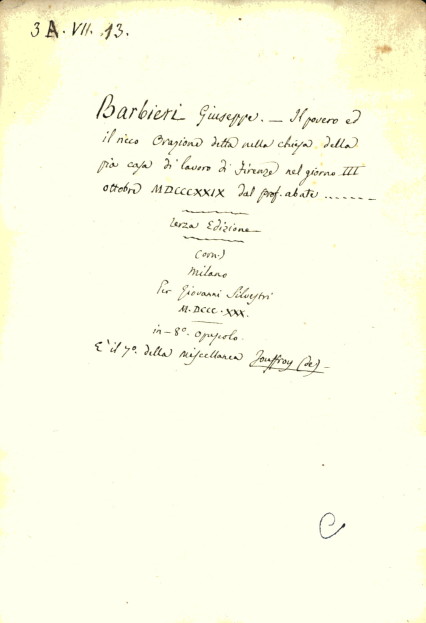 3 A. VII. 13.
Barbieri Giuseppe. — Il povero ed
il ricco Orazione detta nella chiesa della
pia casa di lavoro di Firenze nel giorno III
ottobre MDCCCXXIX dal prof. abate .......
terza Edizione
(corn.)
Milano
Per Giovanni Silvestri
M.DCCC.XXX.
in-8º. opuscolo.
È il 7º. della Miscellanea Jouffroy (de)
C